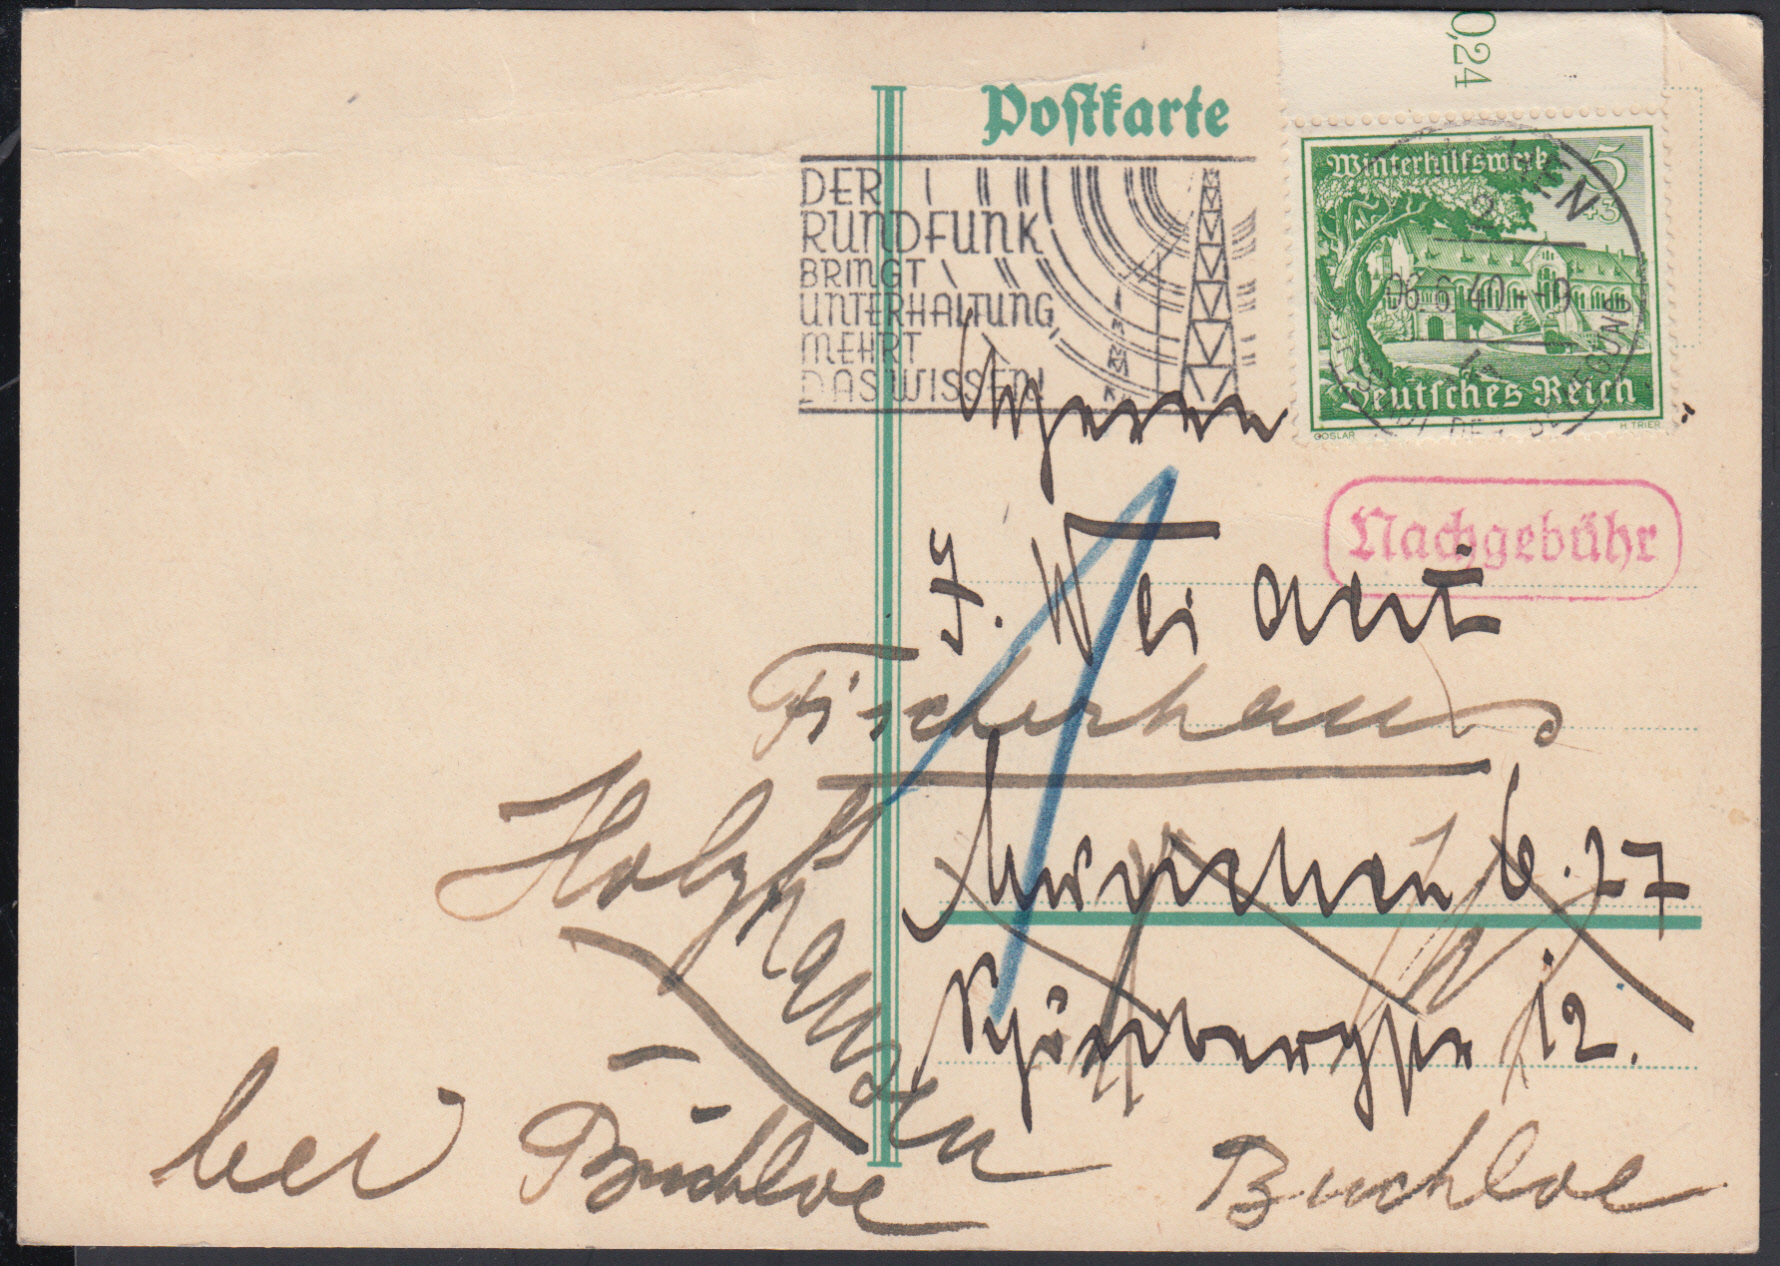 0,24
Postkarte
DER
RUNDFUNK
BRINGT
UNTERHALTUNG
MEHRT
DAS WISSEN!
Winterhilfswerk
5
+3
Deutsches Reich
GOSLAR H. TRIER
06.6.40.-19
Nachgebühr
Herrn
J. Weiant
Fischerhaus
München 6.27
12.
Holzhausen
bei Buchloe
Buchloe